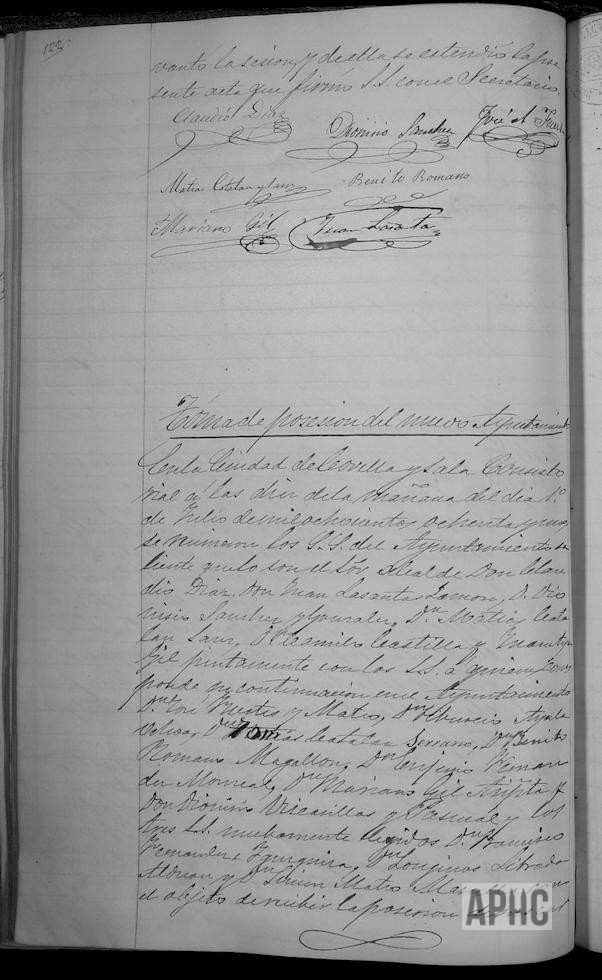 122
vantó la sesion, y de ella se estendió la pre
sente acta que firmó S.S. con el Secretario
Claudio Diaz
Dionisio Sanchez
José
Matias Catalan y Sanz
Benito Romano
Mariano Gil
Juan Lasanta
Toma de posesion del nuevo Ayuntamiento
En la Ciudad de Corella y Sala Consisto
rial a las diez de la mañana del dia 1.º
de Julio de mil ochocientos ochenta y uno
se reunieron los S.S. del Ayuntamiento sa
liente que lo son el Sor Alcalde Don Clau
dio Diaz, Don Juan Lasanta Zamora, D. Dio
nisio Sanchez y Gonzalez, Dn Matias Cata
lan Sanz, Dn Camilo Castilla y
Gil juntamente con los S.S. a quienes
ponde continuacion en el Ayuntamiento
Dn José y Mateo, Dn Ayala
Dn Tomas Catalan Serrano, Dn Benito
Romano Magallon, Dn Fernan
dez Monreal, Dn Mariano Gil
Don Dionisio Viscasillas y Pascual y los
tres S.S. nuebamente elegidos Dn Francisco
Fernandez Dn Longinos Librado
Dn Mateo
el objeto de recibir la posesion
APHC